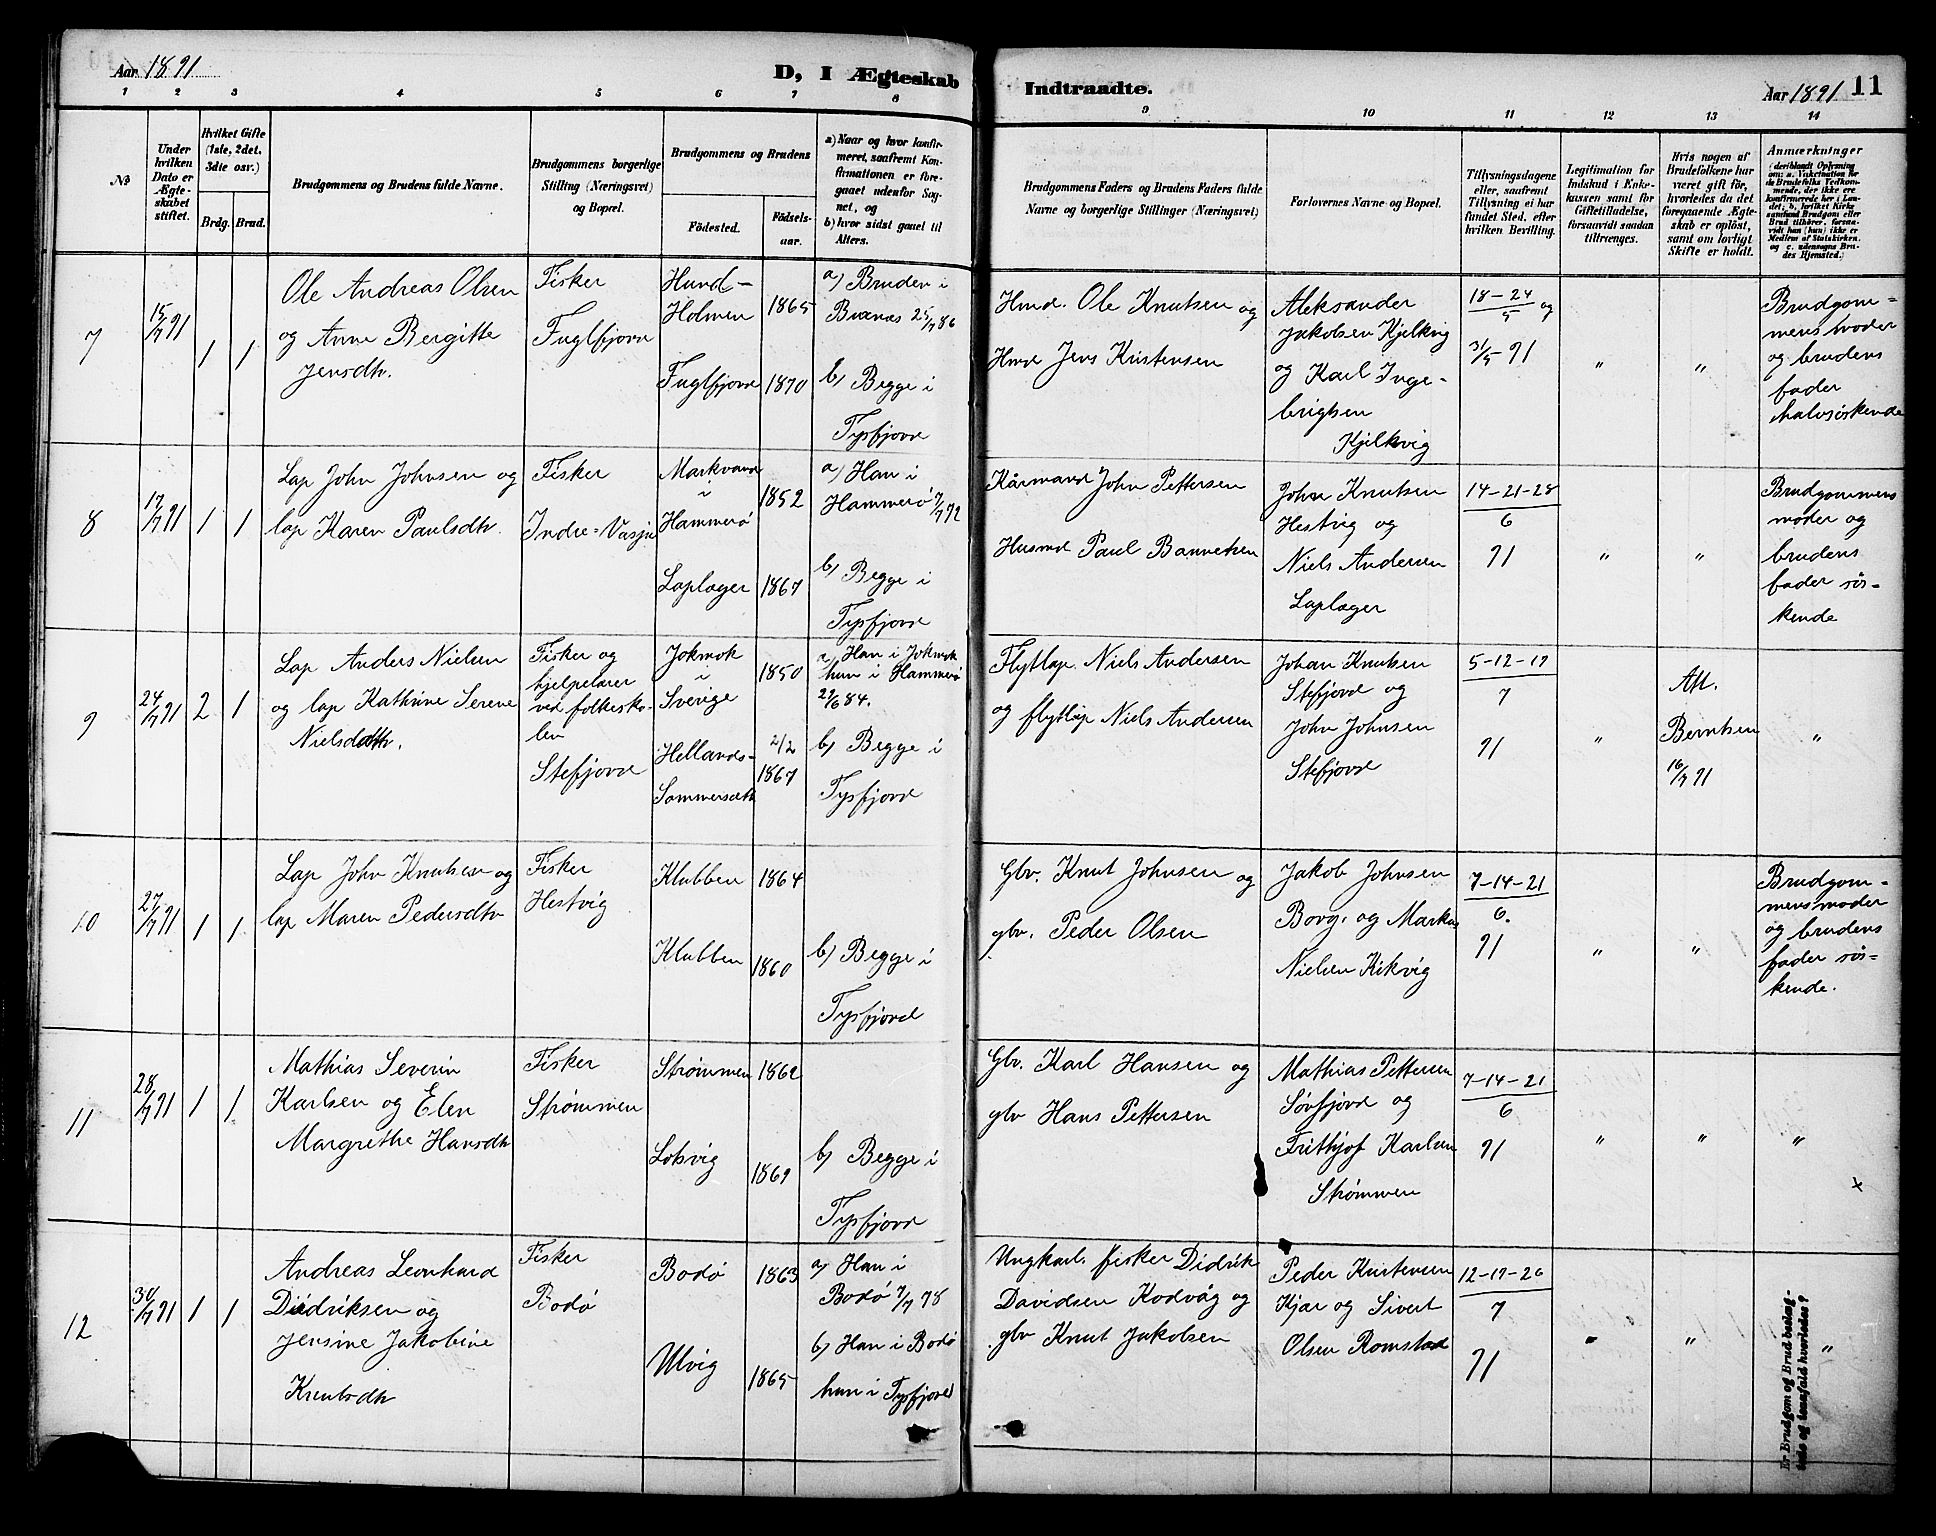 Aar 1891
D, I Ægteskab
Indtraadte.
Aar 1891
11
1 2 3 4 5 6 7 8 9 10 11 12 13 14
№
Under
hvilken
Dato er
Ægte-
skabet
stiftet.
Hvilket Gifte
(1ste, 2det,
3die osv.)
Brdg. Brud.
Brudgommens og Brudens fulde Navne.
Brudgommens borgerlige
Stilling (Næringsvei)
og Bopæl.
Brudgommens og Brudens
Fødested.
Fødsels-
aar.
a) Naar og hvor konfir-
meret, saafremt Kon-
firmationen er fore-
gaaet udenfor Sog-
net, og
b) hvor sidst gaaet til
Alters.
Brudgommens Faders og Brudens Faders fulde
Navne og borgerlige Stillinger (Næringsvei)
Forlovernes Navne og Bopæl.
Tillysningsdagene
eller, saafremt
Tillysning ei har
fundet Sted, efter
hvilken Bevilling.
Legitimation for
Indskud i Enke-
kassen samt for
Giftetilladelse,
forsaavidt saadan
tiltrænges.
Hvis nogen af
Brudefolkene har
været gift før,
hvorledes da det
foregaaende Ægte-
skab er opløst,
samt om lovligt
Skifte er holdt.
Anmærkninger
(deriblandt Oplysning
om: a. Vakcination for
de Brudefolks Vedkom-
mende, der ikke ere
konfirmerede her i Lan-
det; b. hvilket Kirke-
samfund Brudgom eller
Brud tilhører, forsaa-
vidt han (hun) ikke er
Medlem af Statskirken,
og c. udensogns Bru-
des Hjemsted.)
7
15/7 91
1
1
Ole Andreas Olsen
og Anne Bergitte
Jensdtr.
Fisker
Fuglfjord
Hund-
Holmen
Fuglfjord
1865
1870
a) Bruden i
Buxnæs 25/7 86
b) Begge i
Tysfjord
Hmd. Ole Knutsen og
Hmd Jens Kristensen
Aleksander
Jakobsen Kjelkvig
og Karl Inge-
brigtsen
Kjelkvig
18-24/5 og
31/5 91
"
"
Brudgom-
mens moder
og brudens
fader
halvsøskende
8
17/7 91
1
1
Lap John Johnsen og
lap Karen Paulsdtr.
Fisker
Indre=Vasja
Markvand
i
Hammerø
Laplæger
1852
1867
a) Han i
Hammerø 7/7 72
b) Begge i
Tysfjord
Kårmand John Pettersen
Husmd Paul Bannetsen
John Knutsen
Hestvig og
Niels Andersen
Laplæger
14-21-28
6
91
"
"
Brudgommens
moder og
brudens
fader søs-
kende
9
24/7 91
2
1
Lap Anders Nielsen
og lap Kathrine Serene
Nielsdatr.
Fisker og
hjelpelærer
ved folkesko-
len
Stefjord
Jokmok
i
Sverige
Hellands-
Sommersæth
1850
2/2
1867
a) Han i Jokmok
hun i Hammerø
29/6 84.
b) Begge i
Tysfjord
Flytlap. Niels Andersen
og flytlap Niels Andersen
Johan Knutsen
Stefjord og
John Johnsen
Stefjord
5-12-19
7
91
"
Att.
Berntsen
16/7 91
"
10
27/7 91
1
1
Lap John Knutsen og
lap Maren Pedersdtr
Fisker
Hestvig
Klubben
Klubben
1864
1860
b) Begge i
Tysfjord
Gbr. Knut Johnsen og
gbr. Peder Olsen
Jakob Johnsen
Borg. og Markus
Nielsen Kikvig
7-14-21
6.
91
"
"
Brudgom-
mens moder
og brudens
fader søs-
kende.
11
28/7 91
1
1
Mathias Severin
Karlsen og Elen
Margrethe Hansdtr
Fisker
Strømmen
Strømmen
Lokvig
1862
1869
b) Begge i
Tysfjord
Gbr. Karl Hansen og
gbr Hans Pettersen
Mathias Pettersen
Sørfjord og
Frithjof Karlsen
Strømmen
7-14-21
6
91
"
"
"
12
30/7 91
1
1
Andreas Leonhard
Didriksen og
Jensine Jakobine
Knutsdtr
Fisker
Bodø
Bodø
Ulvig
1863
1865
a) Han i
Bodø 7/7 78
b) Han i Bodø
hun i Tysfjord
Ungkarl. fisker Didrik
Davidsen Kodvåg og
gbr Knut Jakobsen
Peder Kristensen
Kjær og Sivert
Olsen Romstad
12-19-26
7
91
"
"
Er Brudgom og Brud beslæg-
tede og isaafald hvorledes?